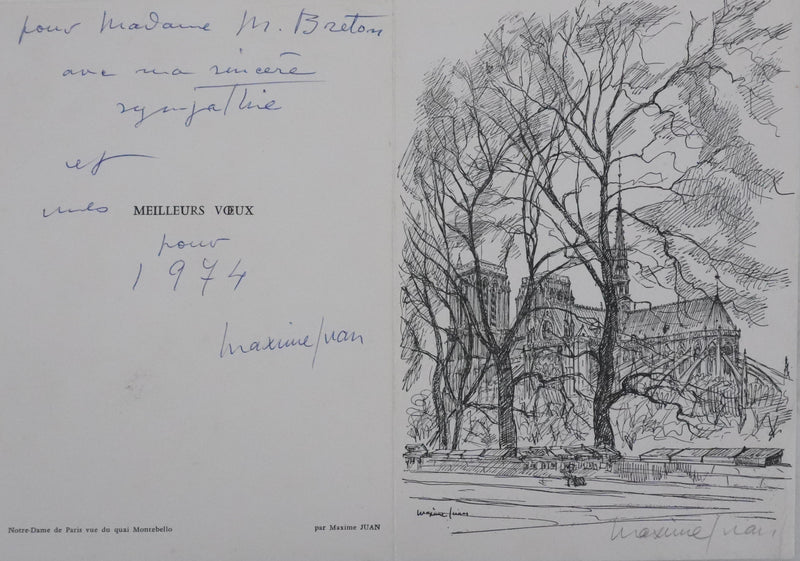 pour Madame M. Breton
avec ma sincère
sympathie
et
mes MEILLEURS VŒUX
pour
1974
Maxime Juan
Notre-Dame de Paris vue du quai Montebello
par Maxime JUAN
Maxime Juan
Maxime Juan